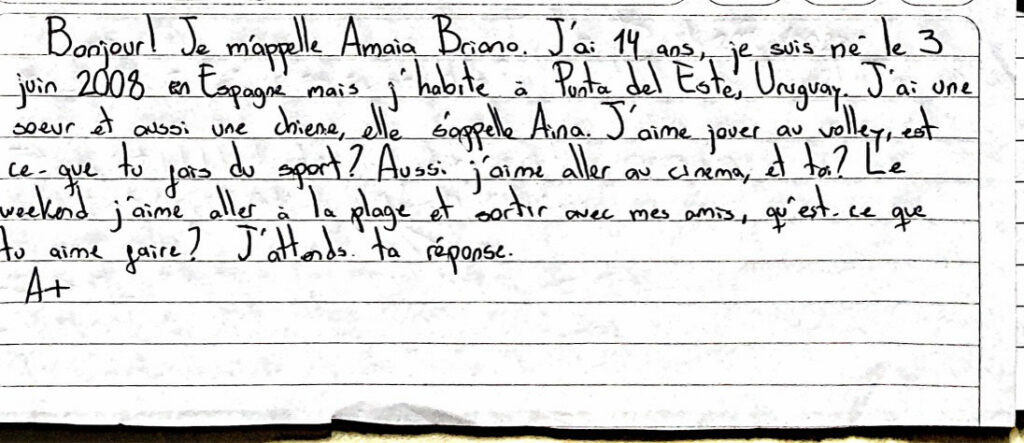 Bonjour! Je m'appelle Amaia Briano. J'ai 14 ans, je suis né le 3
juin 2008 en Espagne mais j'habite à Punta del Este, Uruguay. J'ai une
soeur et aussi une chiene, elle s'appelle Aina. J'aime jouer au volley, est
ce-que tu fais du sport? Aussi j'aime aller au cinema, et toi? Le
weekend j'aime aller à la plage et sortir avec mes amis, qu'est-ce que
tu aime faire? J'attends ta réponse.
A+